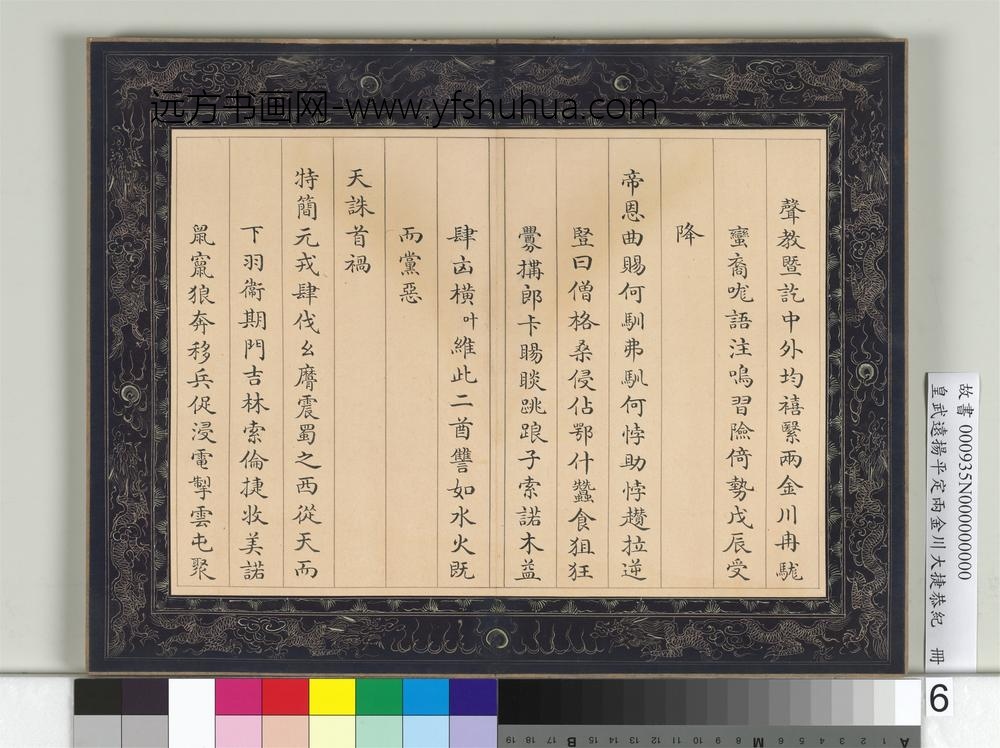 远方书画网-www.yfshuhua.com
聲教暨訖中外均禧繄兩金川冉駹
蠻裔咙語注嗚習險倚勢戊辰受
降
帝恩曲賜何馴弗馴何悖助悖趲拉逆
豎曰僧格桑侵佔鄂什蠶食狙狂
釁搆郎卡睗睒跳踉子索諾木益
肆凶橫叶維此二酋讐如水火既
而黨惡
天誅首禍
特簡元戎肆伐幺麿震蜀之西從天而
下羽衛期門吉林索倫捷收美諾
鼠竄狼奔移兵促浸電掣雲屯聚
故書 000935N000000000
皇武遠揚平定兩金川大捷恭紀 冊
6
A 1 2 3 4 5 6 M 8 9 10 11 12 13 14 15 B 17 18 19